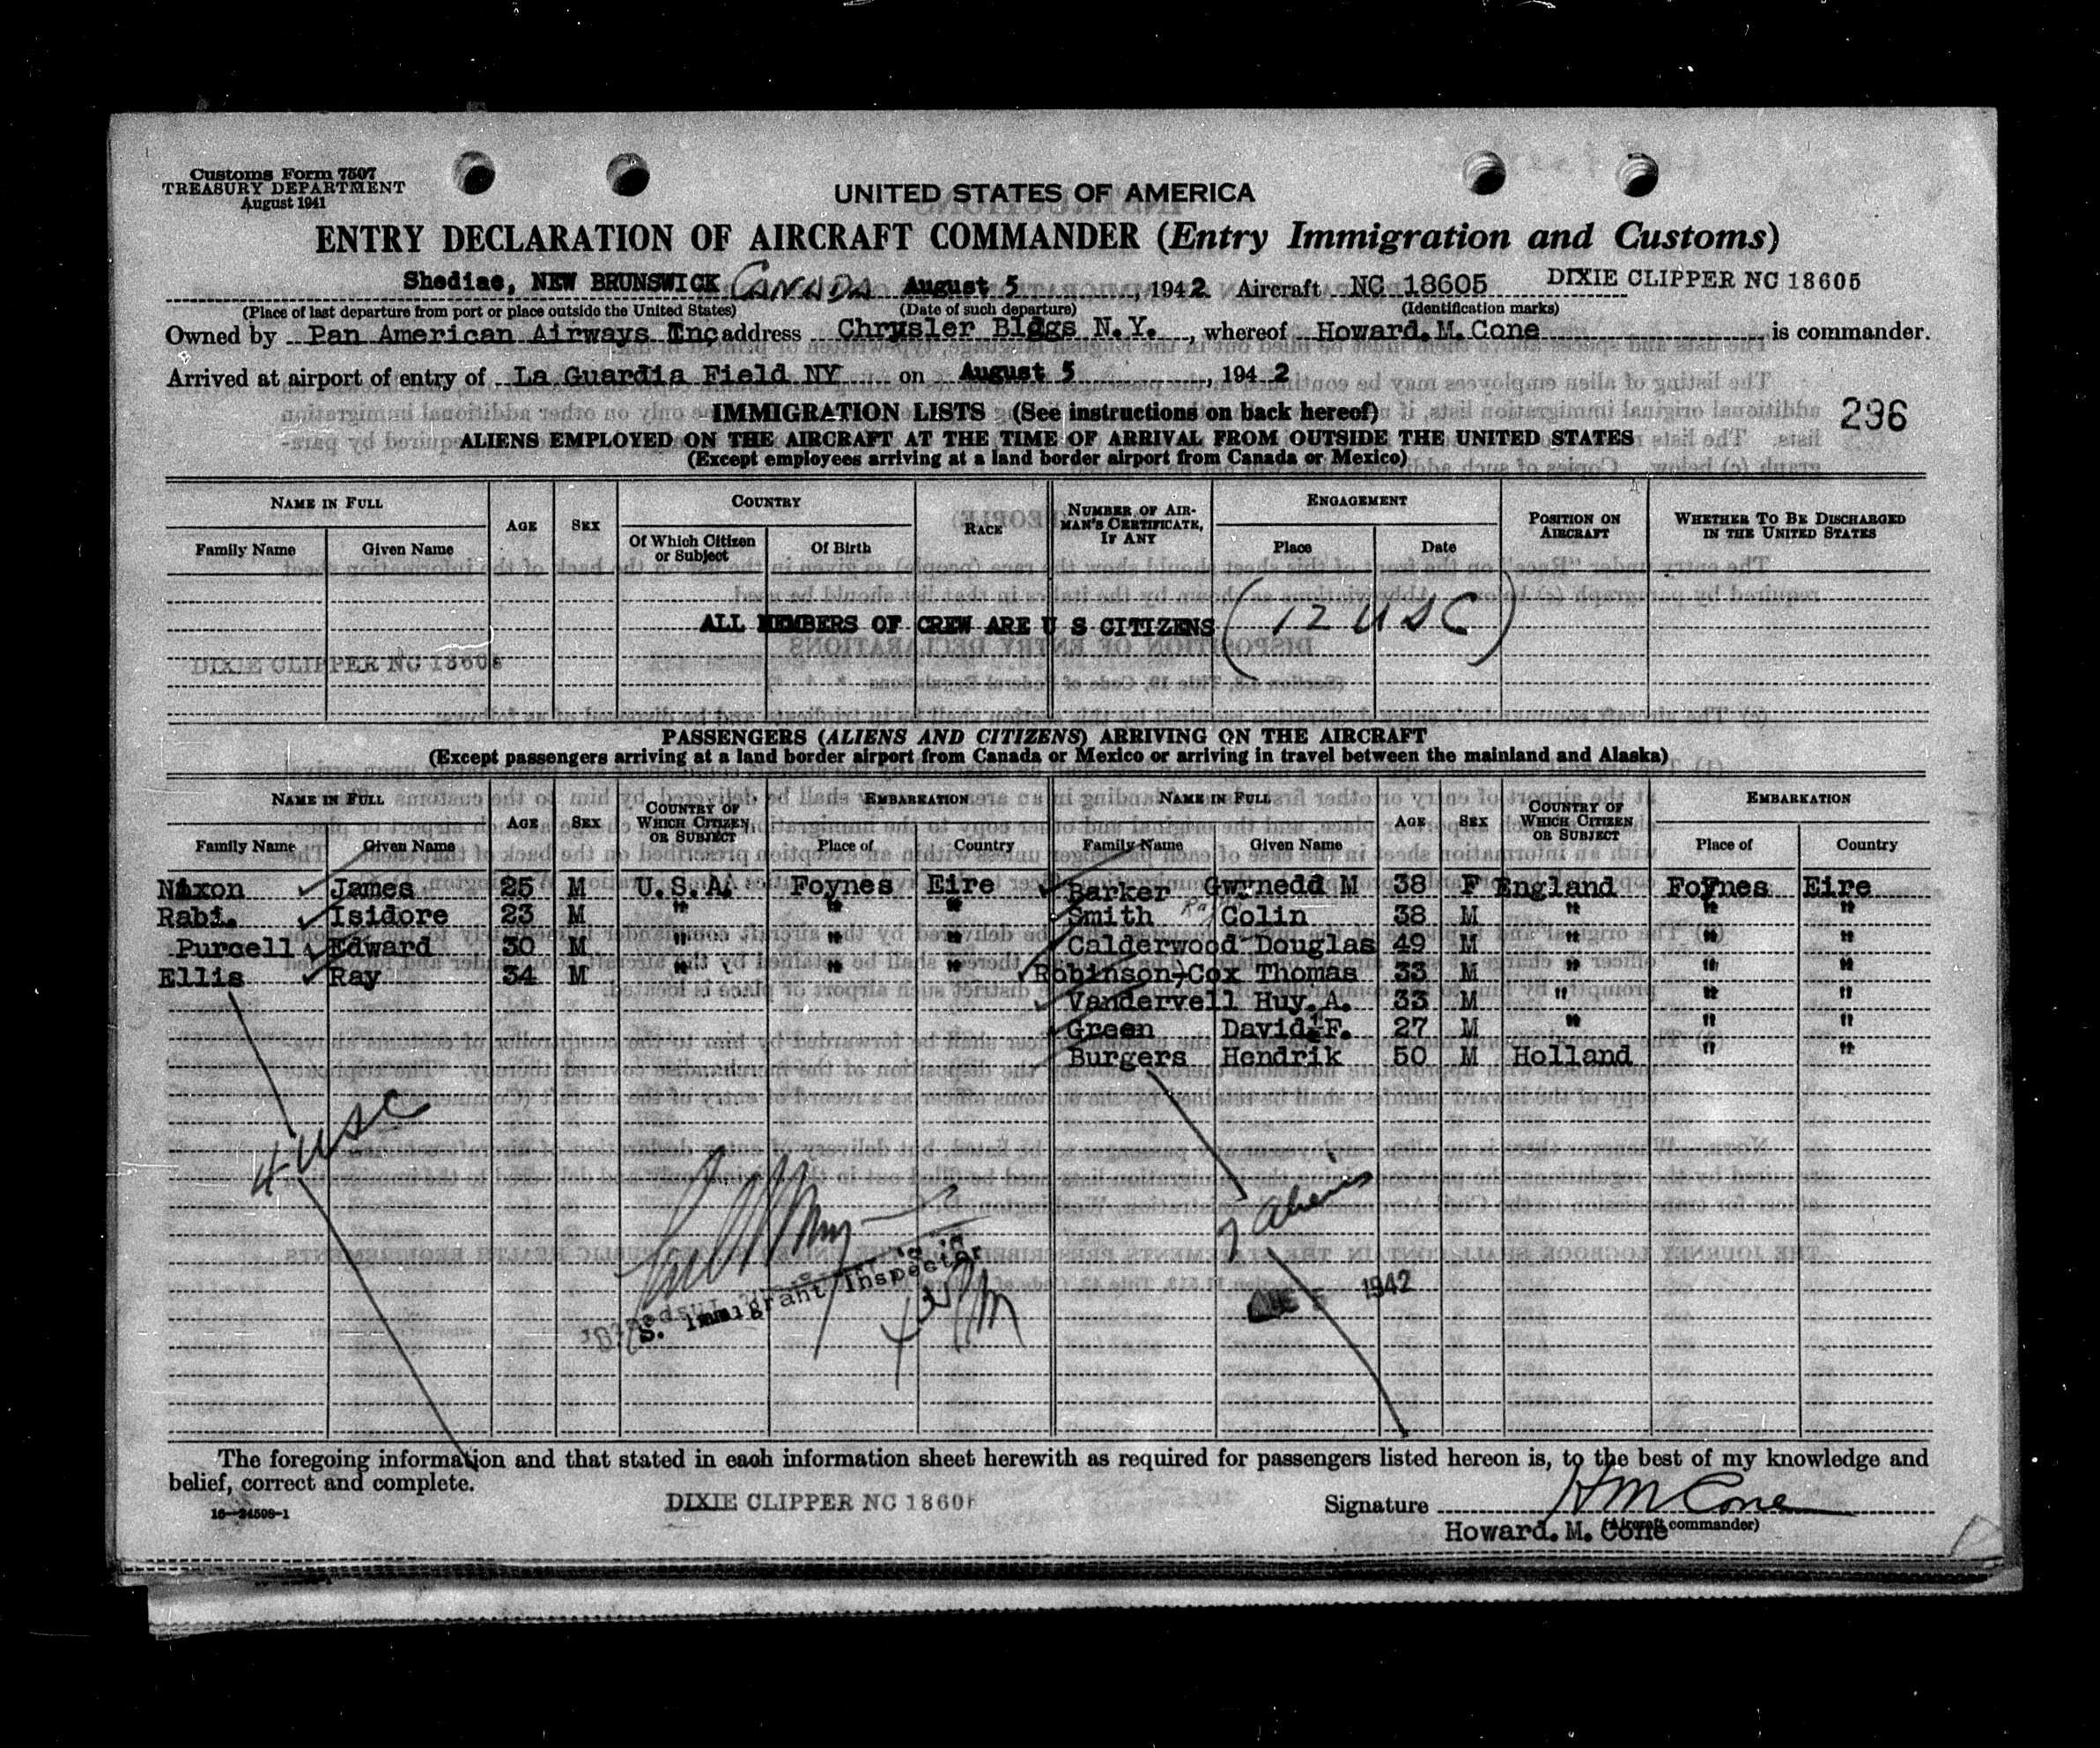 Customs Form 7507
TREASURY DEPARTMENT
August 1941
UNITED STATES OF AMERICA
ENTRY DECLARATION OF AIRCRAFT COMMANDER (Entry Immigration and Customs)
Shediac, NEW BRUNSWICK CANADA August 5, 1942 Aircraft NC 18605 DIXIE CLIPPER NC 18605
(Place of last departure from port or place outside the United States) (Date of such departure) (Identification marks)
Owned by Pan American Airways Inc, address Chrysler Bldgs N.Y., whereof Howard.M.Cone is commander.
Arrived at airport of entry of La Guardia Field NY on August 5, 1942
IMMIGRATION LISTS (See instructions on back hereof) 296
ALIENS EMPLOYED ON THE AIRCRAFT AT THE TIME OF ARRIVAL FROM OUTSIDE THE UNITED STATES
(Except employees arriving at a land border airport from Canada or Mexico)
NAME IN FULL AGE SEX COUNTRY RACE NUMBER OF AIRMAN'S CERTIFICATE, IF ANY ENGAGEMENT POSITION ON AIRCRAFT WHETHER TO BE DISCHARGED IN THE UNITED STATES
Family Name Given Name Of Which Citizen or Subject Of Birth Place Date
ALL MEMBERS OF CREW ARE U S CITIZENS (12 USC)
DIXIE CLIPPER NC 18605
PASSENGERS (ALIENS AND CITIZENS) ARRIVING ON THE AIRCRAFT
(Except passengers arriving at a land border airport from Canada or Mexico or arriving in travel between the mainland and Alaska)
NAME IN FULL AGE SEX COUNTRY OF WHICH CITIZEN OR SUBJECT EMBARKATION NAME IN FULL AGE SEX COUNTRY OF WHICH CITIZEN OR SUBJECT EMBARKATION
Family Name Given Name Place of Country Family Name Given Name Place of Country
Nixon James 25 M U.S.A. Foynes Eire Barker Gwynedd M 38 F England Foynes Eire
Rabi. Isidore 23 M " " " Smith Colin 38 M " " "
Purcell Edward 30 M " " " Calderwood Douglas 49 M " " "
Ellis Ray 34 M " " " Robinson-Cox Thomas 33 M " " "
Vandervell Huy.A. 33 M " " "
Green David.F. 27 M " " "
Burgers Hendrik 50 M Holland " "
4 USC
7 Aliens
U.S. Immigrant Inspector
AUG 5 1942
The foregoing information and that stated in each information sheet herewith as required for passengers listed hereon is, to the best of my knowledge and
belief, correct and complete.
16—24508-1
DIXIE CLIPPER NC 18605
Signature H M Cone
(Aircraft commander)
Howard. M. Cone